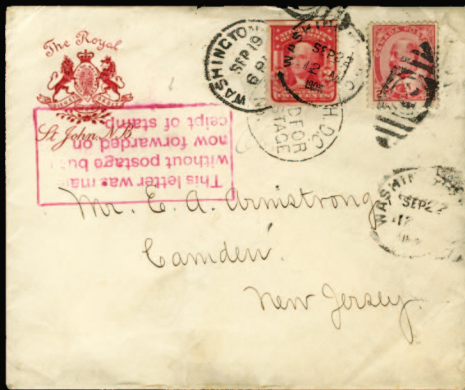 The Royal
St John N.B.
This letter was ma
without postage bu
now forwarded on
ceipt of stam
WASHINGTON
SEP 19
WASHIN
SEP 2
D.C.
D FOR
TAGE
WASHIN
SEP 22
12
Mr. E. A. Armstrong,
Camden
New Jersey.